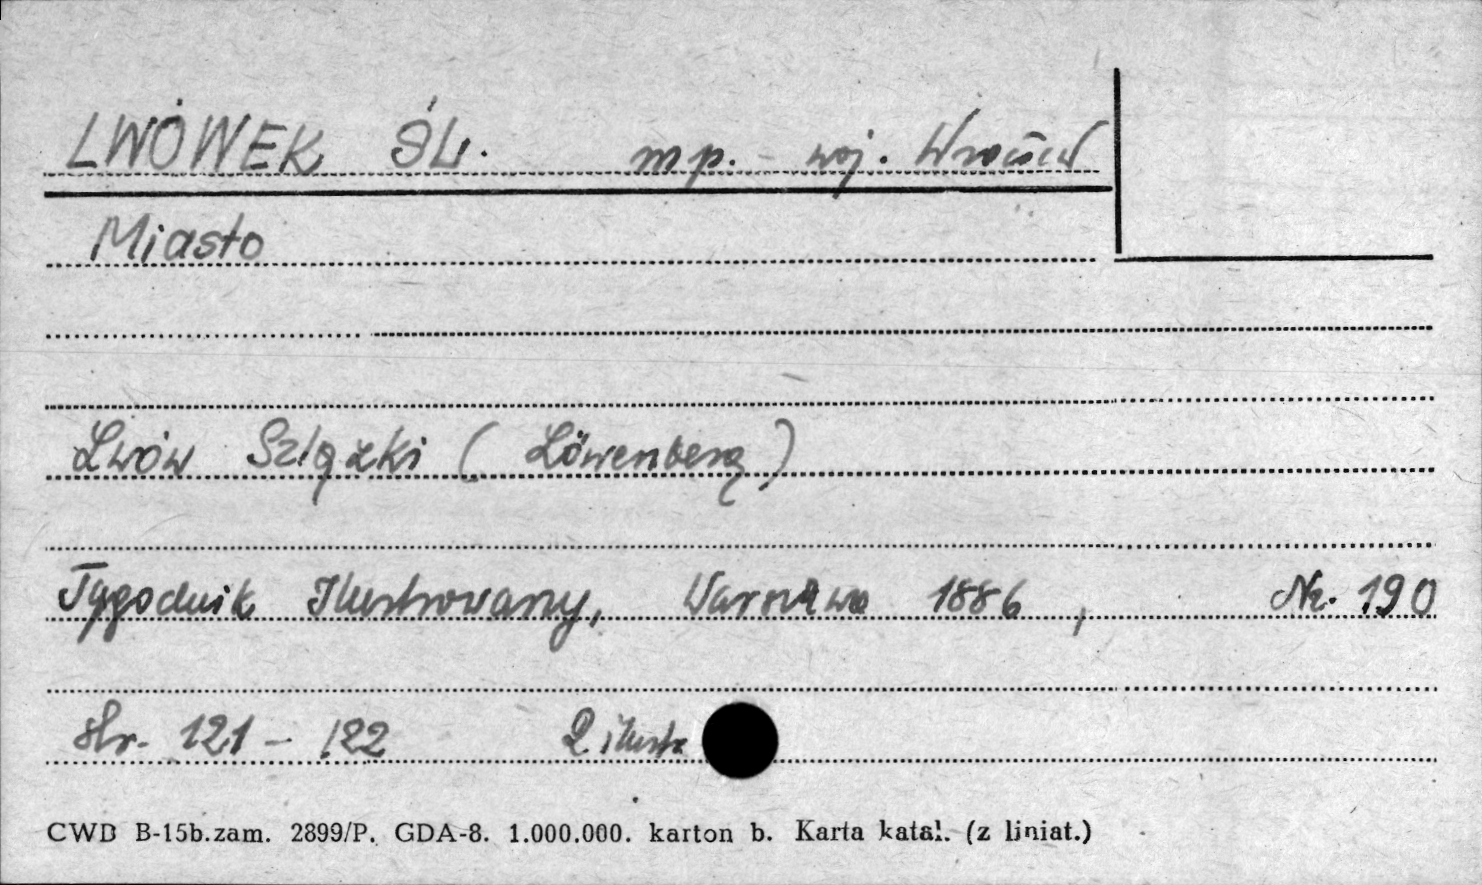 LWÓWEK ŚL. mp. - woj. Wrocław
Miasto
Lwów Szląski (Löwenberg)
Tygodnik Ilustrowany, Warszawa 1886, Nr. 190
str. 121 - 122 2 ilustr
CWD B-15b.zam. 2899/P. GDA-8. 1.000.000. karton b. Karta katal. (z liniat.)